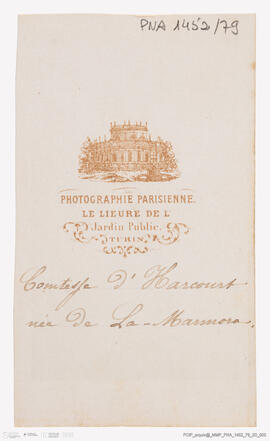 PNA 1452/79
PHOTOGRAPHIE PARISIENNE.
LE LIEURE DE L'
Jardin Public.
TURIN
Comtesse d'Harcourt
née de La-Marmora.